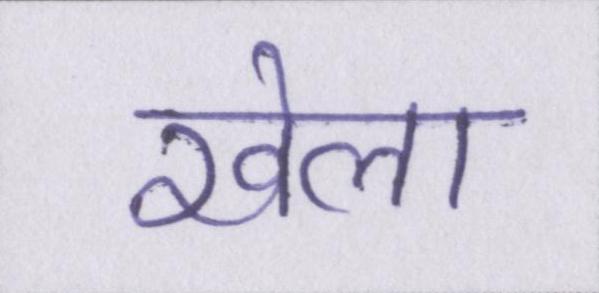 खेला